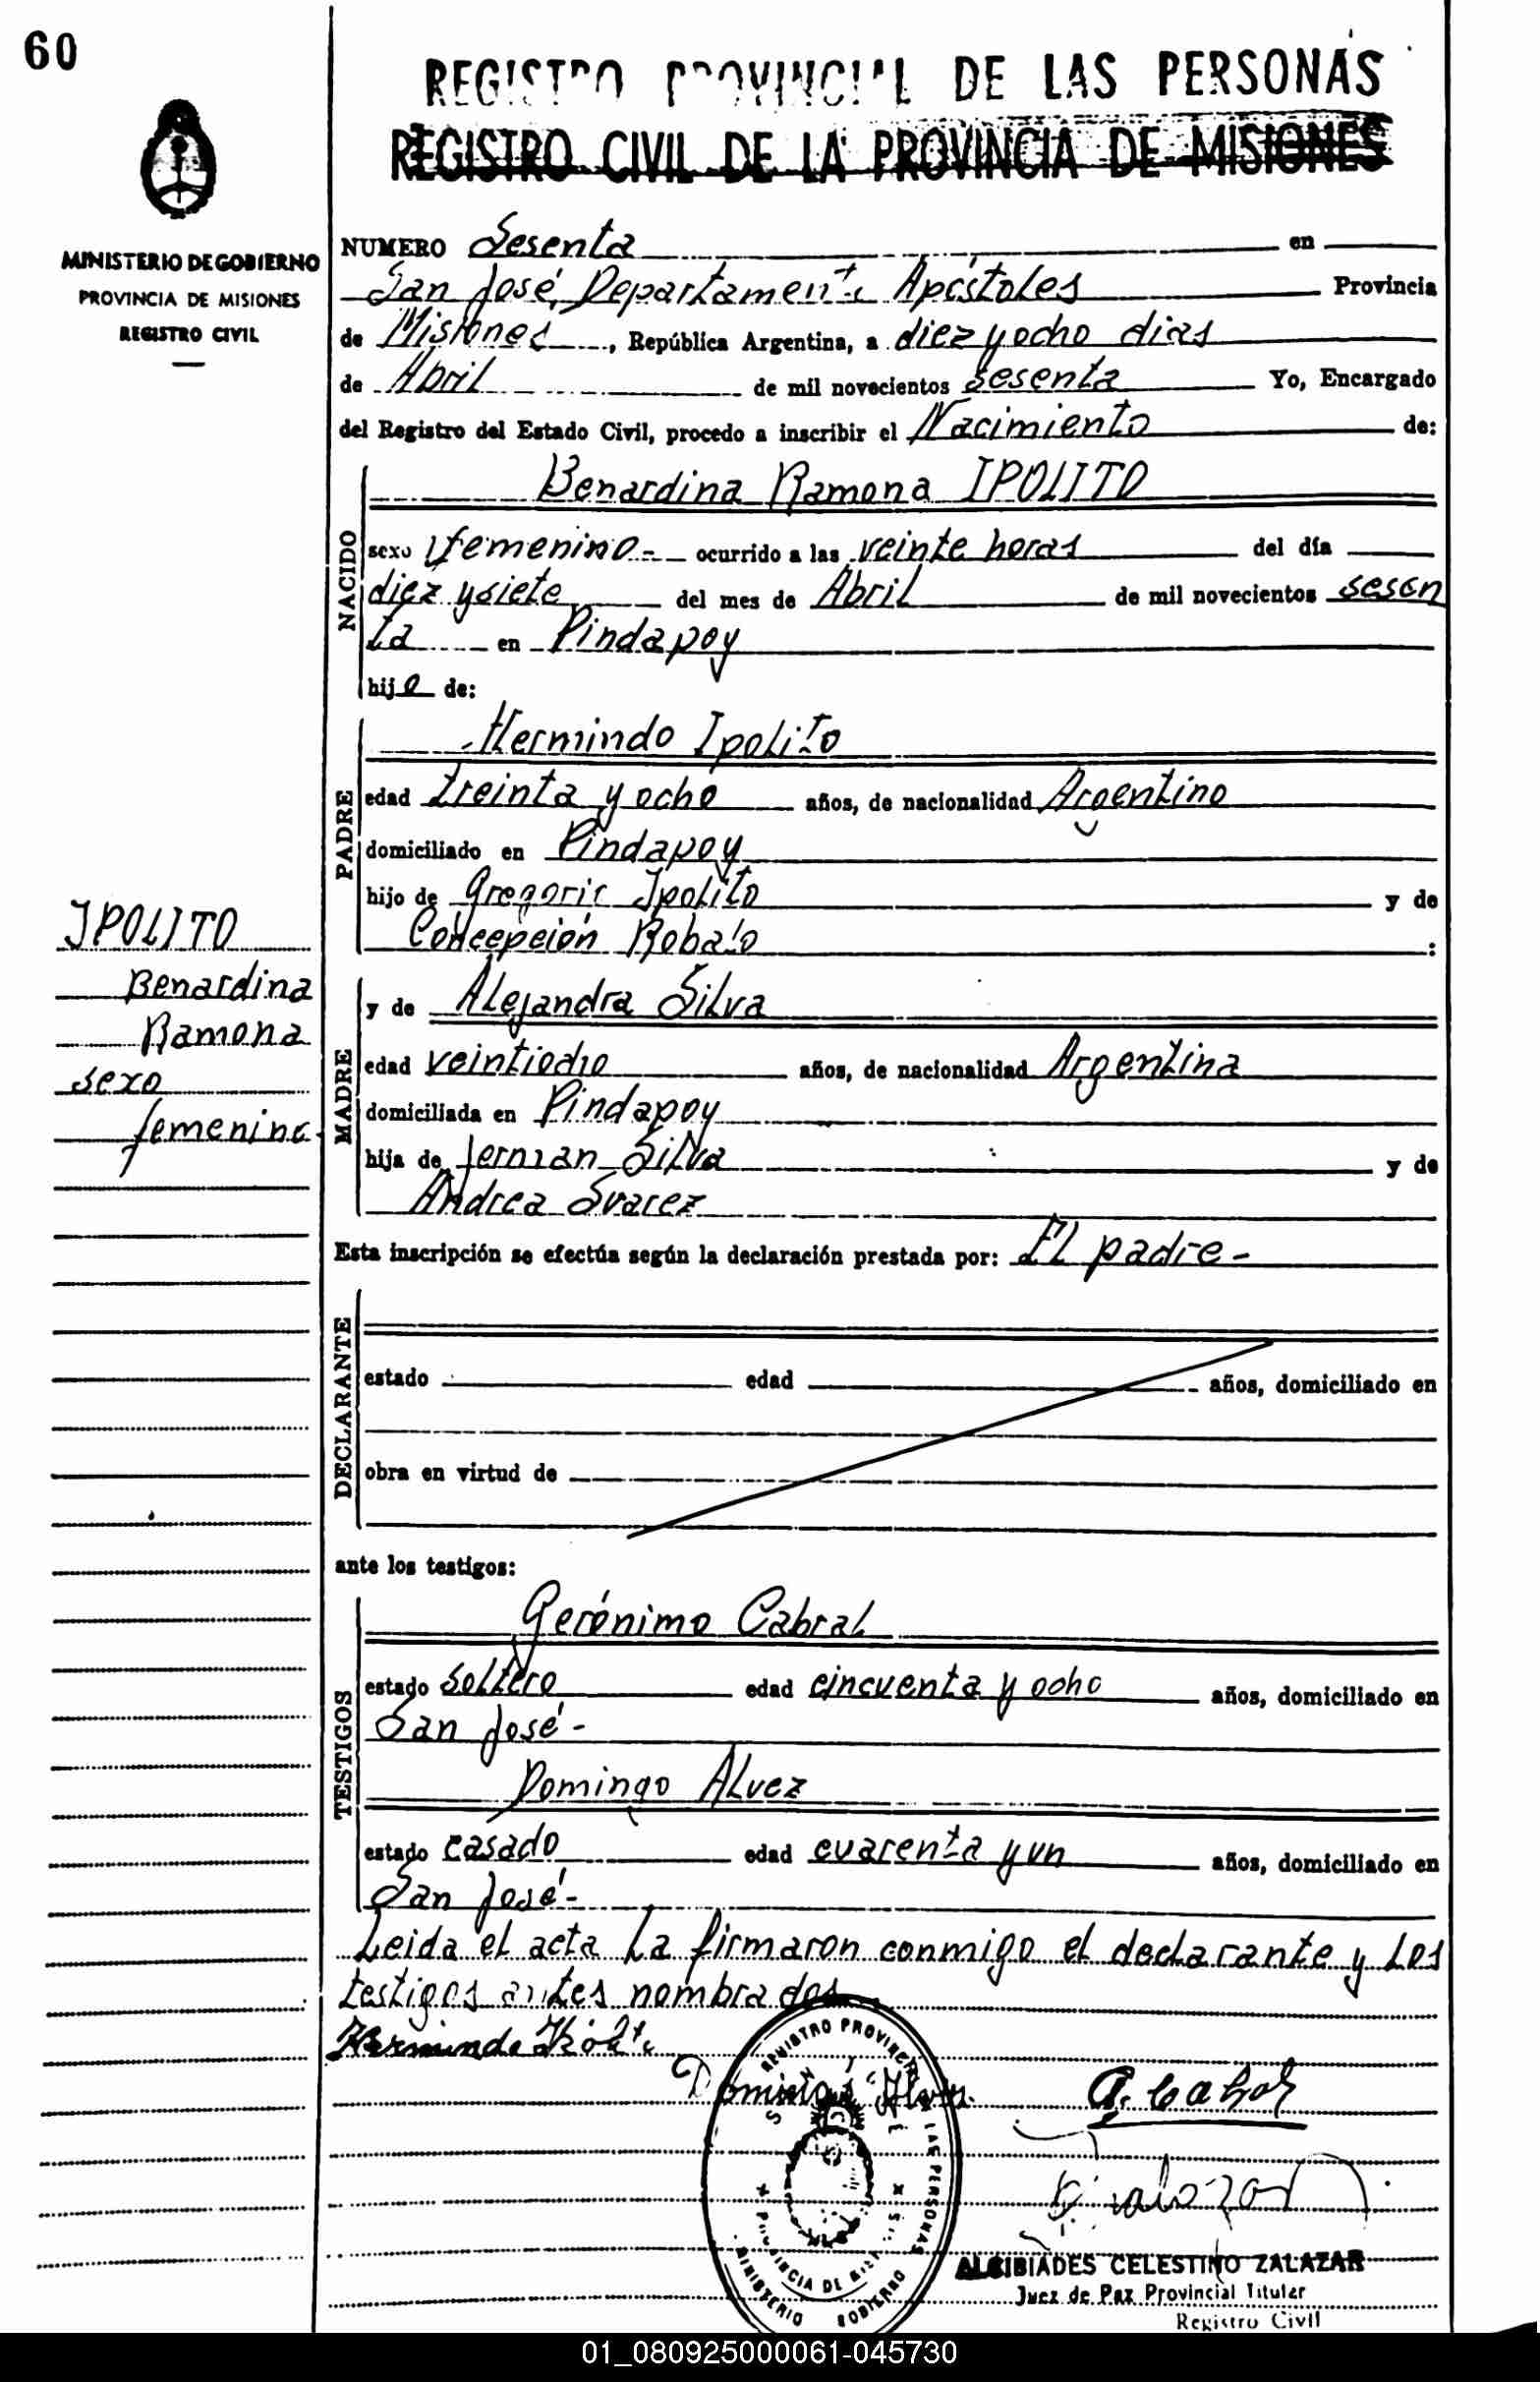 60
REGISTRO PROVINCIAL DE LAS PERSONAS
REGISTRO CIVIL DE LA PROVINCIA DE MISIONES
MINISTERIO DE GOBIERNO
PROVINCIA DE MISIONES
REGISTRO CIVIL
NUMERO Sesenta en
San José, Departamento Apóstoles Provincia
de Misiones, República Argentina, a diez y ocho dias
de Abril de mil novecientos sesenta Yo, Encargado
del Registro del Estado Civil, procedo a inscribir el Nacimiento de:
NACIDO
Benardina Ramona IPOLITO
sexo femenino.- ocurrido a las veinte horas del día
diez y siete del mes de Abril de mil novecientos sesen
ta en Pindapoy
hijo de:
PADRE
Hermindo Ipolito
edad treinta y ocho años, de nacionalidad Argentino
domiciliado en Pindapoy
hijo de Gregorio Ipolito y de
Concepción Robalo :
IPOLITO
Benardina
Ramona
sexo
femenino
MADRE
y de Alejandra Silva
edad veintiocho años, de nacionalidad Argentina
domiciliada en Pindapoy
hija de German Silva y de
Andrea Suarez
Esta inscripción se efectúa según la declaración prestada por: El padre-
DECLARANTE
estado edad años, domiciliado en
obra en virtud de
ante los testigos:
TESTIGOS
Gerónimo Cabral
estado soltero edad cincuenta y ocho años, domiciliado en
San José-
Domingo Alvez
estado casado edad cuarenta y un años, domiciliado en
San José-
Leida el acta la firmaron conmigo el declarante y los
testigos antes nombrados
REGISTRO PROVINCIAL DE LAS PERSONAS
PROVINCIA DE MISIONES
MINISTERIO GOBIERNO
G. Cabral
ALCIBIADES CELESTINO ZALAZAR
Juez de Paz Provincial Titular
Registro Civil
01_080925000061-045730